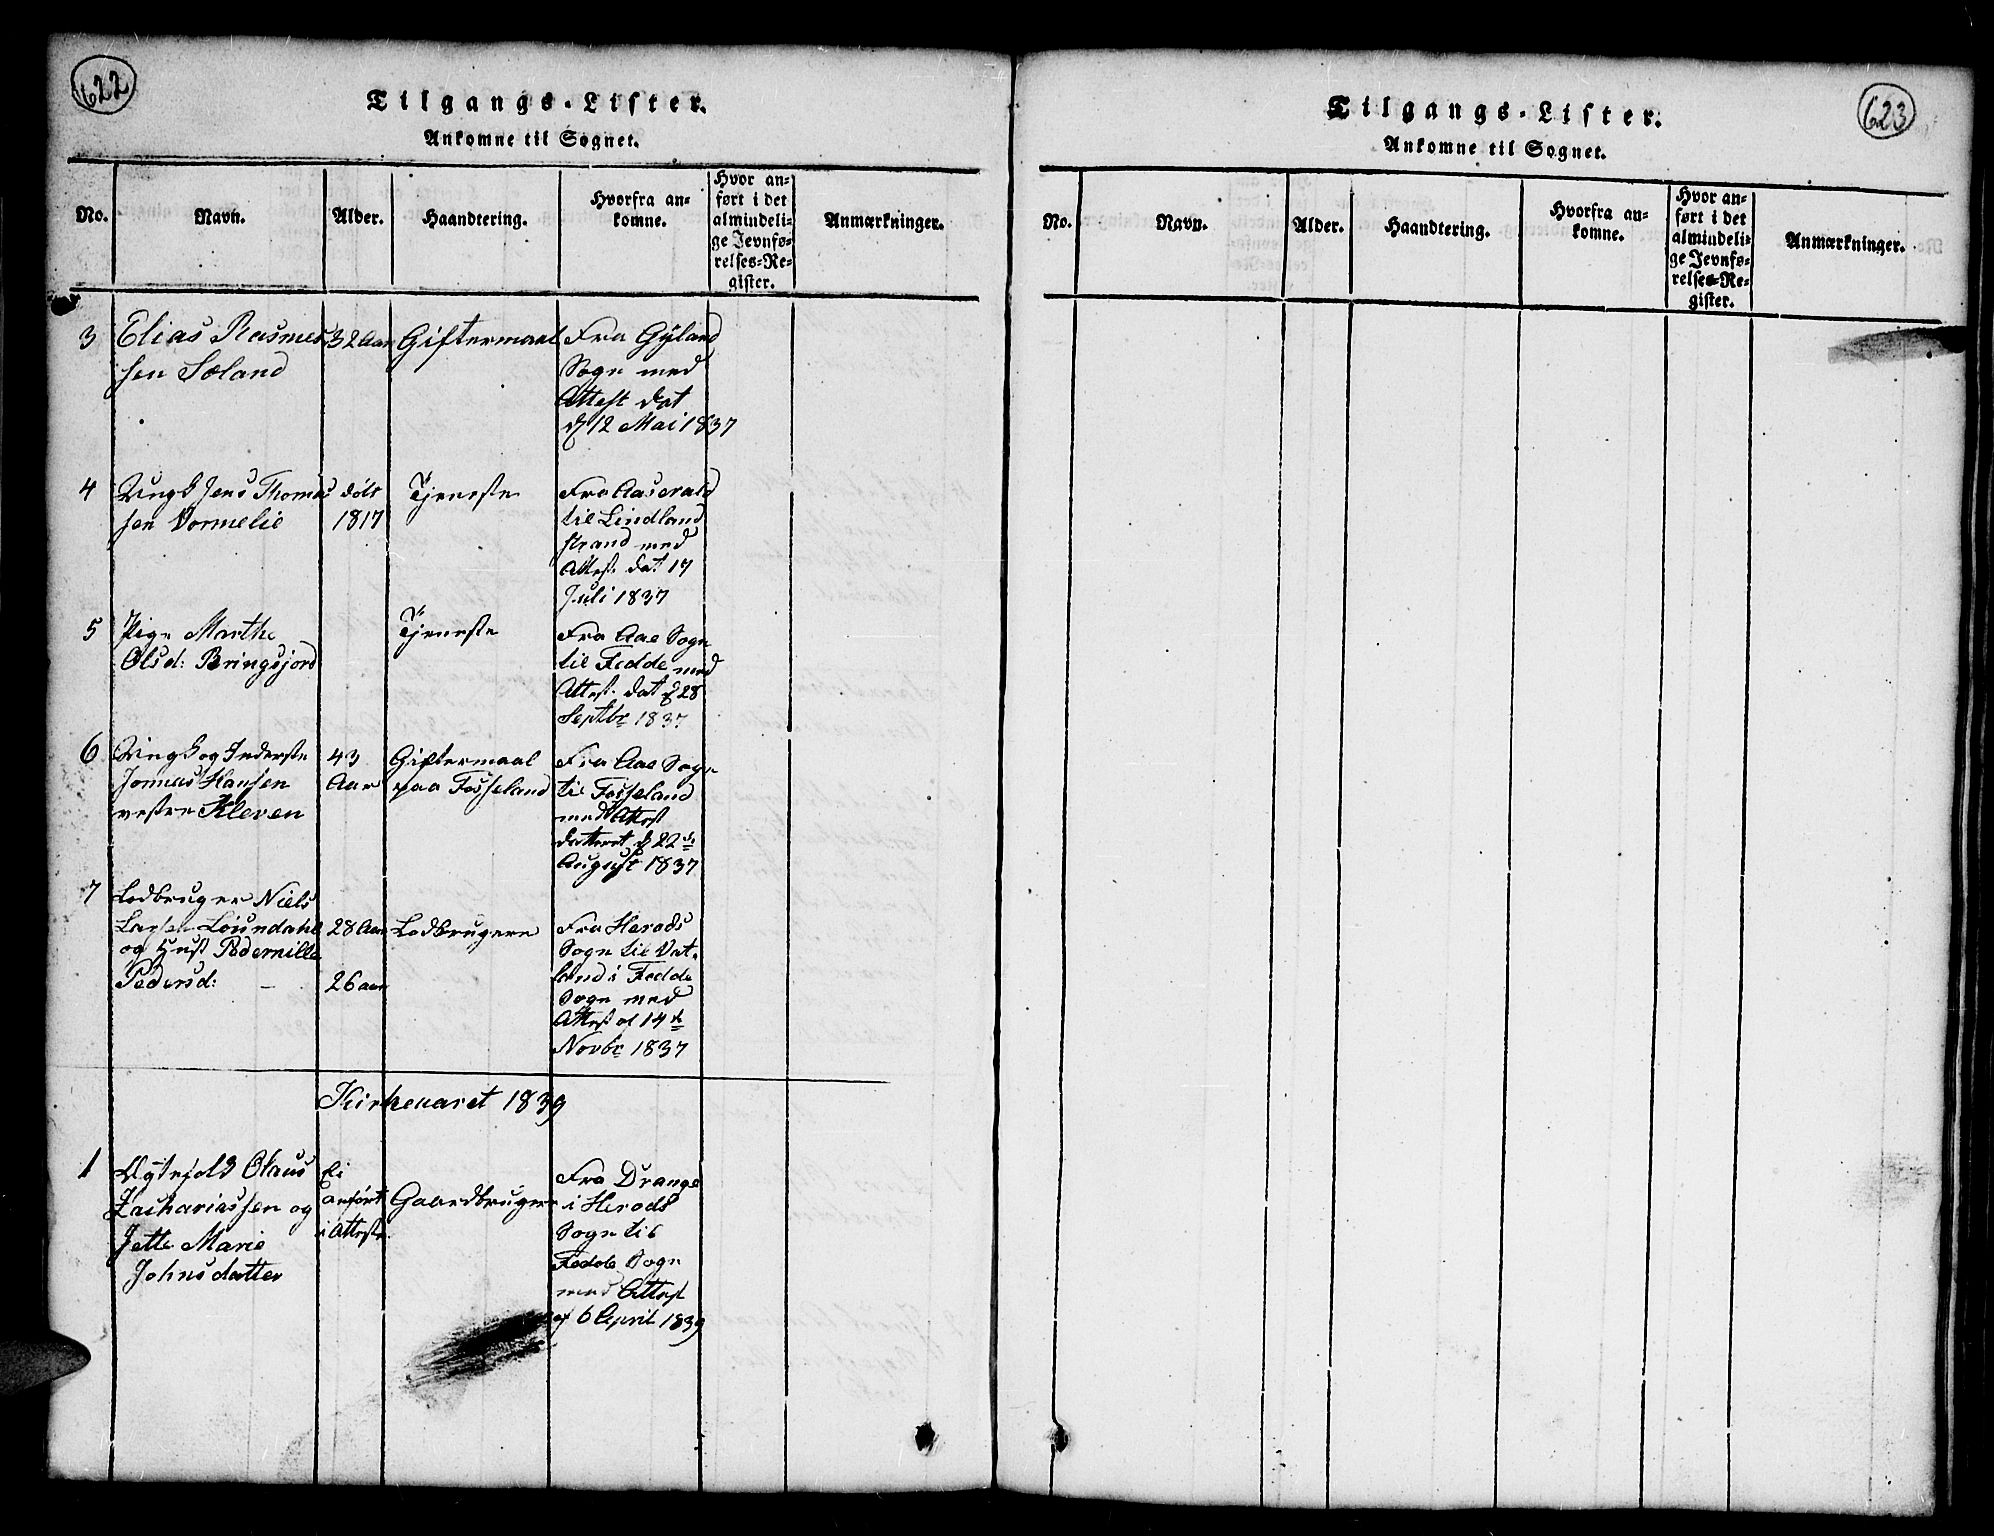 622
Tilgangs-Lister.
Ankomne til Sognet.
No.
Navn.
Alder.
Haandtering.
Hvorfra an-
komne.
Hvor an-
ført i det
almindeli-
ge Jevnfø-
relses-Re-
gister.
Anmærkninger.
3
Elias Rasmus
sen Soland
32 Aar
Giftermaal
Fra Gyland
Sogn med
Attest dat
d 12 Mai 1837
4
Ungk Jens Thomas
sen Vormelie
døbt
1817
Tjeneste
Fra Aaserald
til Lindland
strand med
Attest dat 17
Juli 1837
5
Pige Marthe
Olsd: Bringsjord
Tjeneste
Fra Aae Sogn
til Fedde med
Attest. dat d 28
Septbr 1837
6
Ungk og Inderste
Jonnas Hansen
vestre Kleven
43
Aar
Giftermaal
paa Fosseland
Fra Aae Sogn
til Fosseland
med Attest
datteret d 22de
August 1837
7
Lodbruger Niels
Larsen
og Hust Pedernille
Pedersd: -
28 Aar
26 aar
Lodbrugere
Fra Herads
Sogn til Vat-
land i Fedde
Sogn med
Attest af 14de
Novbr 1837
Kirkeaaret 1839
1
Olaus
Zachariassen og
Jette Marie
Johnsdatter
Ei
anført
i Attest.
Gaardbruger
Fra Drange
i Herads
Sogn til
Fedde Sogn
med Attest
af 6 April 1839
623
Tilgangs-Lister.
Ankomne til Sognet.
No.
Navn.
Alder.
Haandtering.
Hvorfra an-
komne.
Hvor an-
ført i det
almindeli-
ge Jevnfø-
relses-Re-
gister.
Anmærkninger.